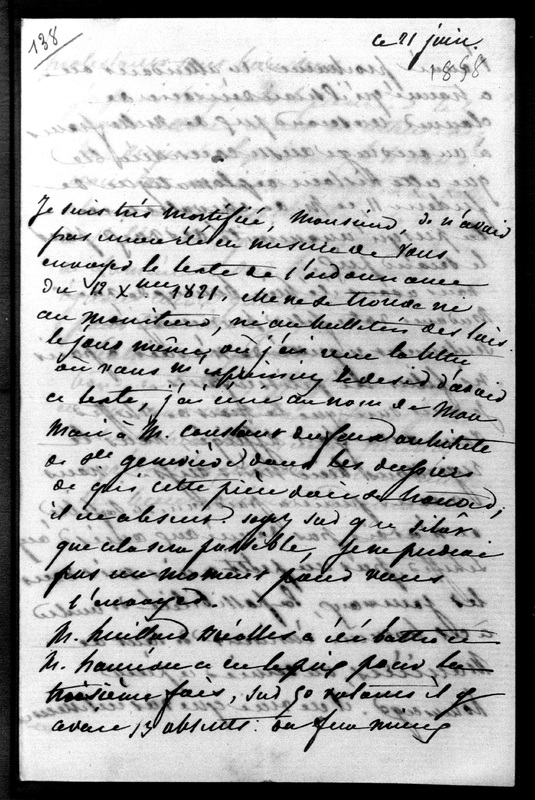 138
ce 21 juin.
1858
Je suis très mortifiée, monsieur, de n'avoir
pas encore été en mesure de vous
envoyer le texte de l'ordonnance
du 12 Xbre 1821, elle ne se trouve ni
au moniteur, ni au bulletin des lois.
le jour même où j'ai reçu la lettre
où vous m'exprimiez le desir d'avoir
ce texte, j'ai écrit au nom de mon
mari à M. constant dufeux architecte
de Ste geneviève dans les dossiers
de qui cette pièce doit se trouver,
il est absent. soyez sur que sitot
que cela sera possible, je ne perdrai
pas un moment pour vous
l'envoyer.
M. huillard Bréolles a été battu
M. hauréau a eu le prix pour la
troisième fois, sur 30 votans il y
avait 13 absents. on fera mieux